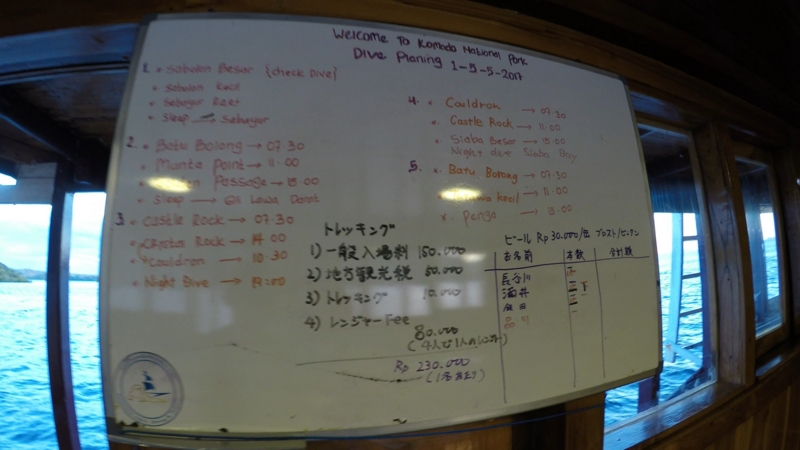 Welcome To Komodo National Park
Dive Planing 1-5-5-2017
1. * Sabolon Besar {check Dive}
* Sabolon Kecil
* Sebayur Reef
* Sleep → Sebayur
2. * Batu Bolong → 07.30
* Manta Point → 11.00
Passage → 15.00
* Sleep → Gili Lawa
3. * Castle Rock → 07.30
* Crystal Rock → 14.00
* Cauldron → 10.30
* Night Dive → 19:00
4. * Cauldron → 07.30
* Castle Rock → 11.00
* Siaba Besar → 15.00
Night dive Siaba Bay
5. * Batu Bolong → 07.30
kecil → 11.00
* Penga → 15.00
トレッキング
1) 一般入場料 150.000
2) 地方観光税 50.000
3) トレッキング 10.000
4) レンジャーFee
80.000
(4人で1人のレンジャー)
Rp 230.000
(1名あたり)
ビール Rp 30.000/缶 プロスト/ビンタン
お名前 本数 合計額
長谷川
酒井